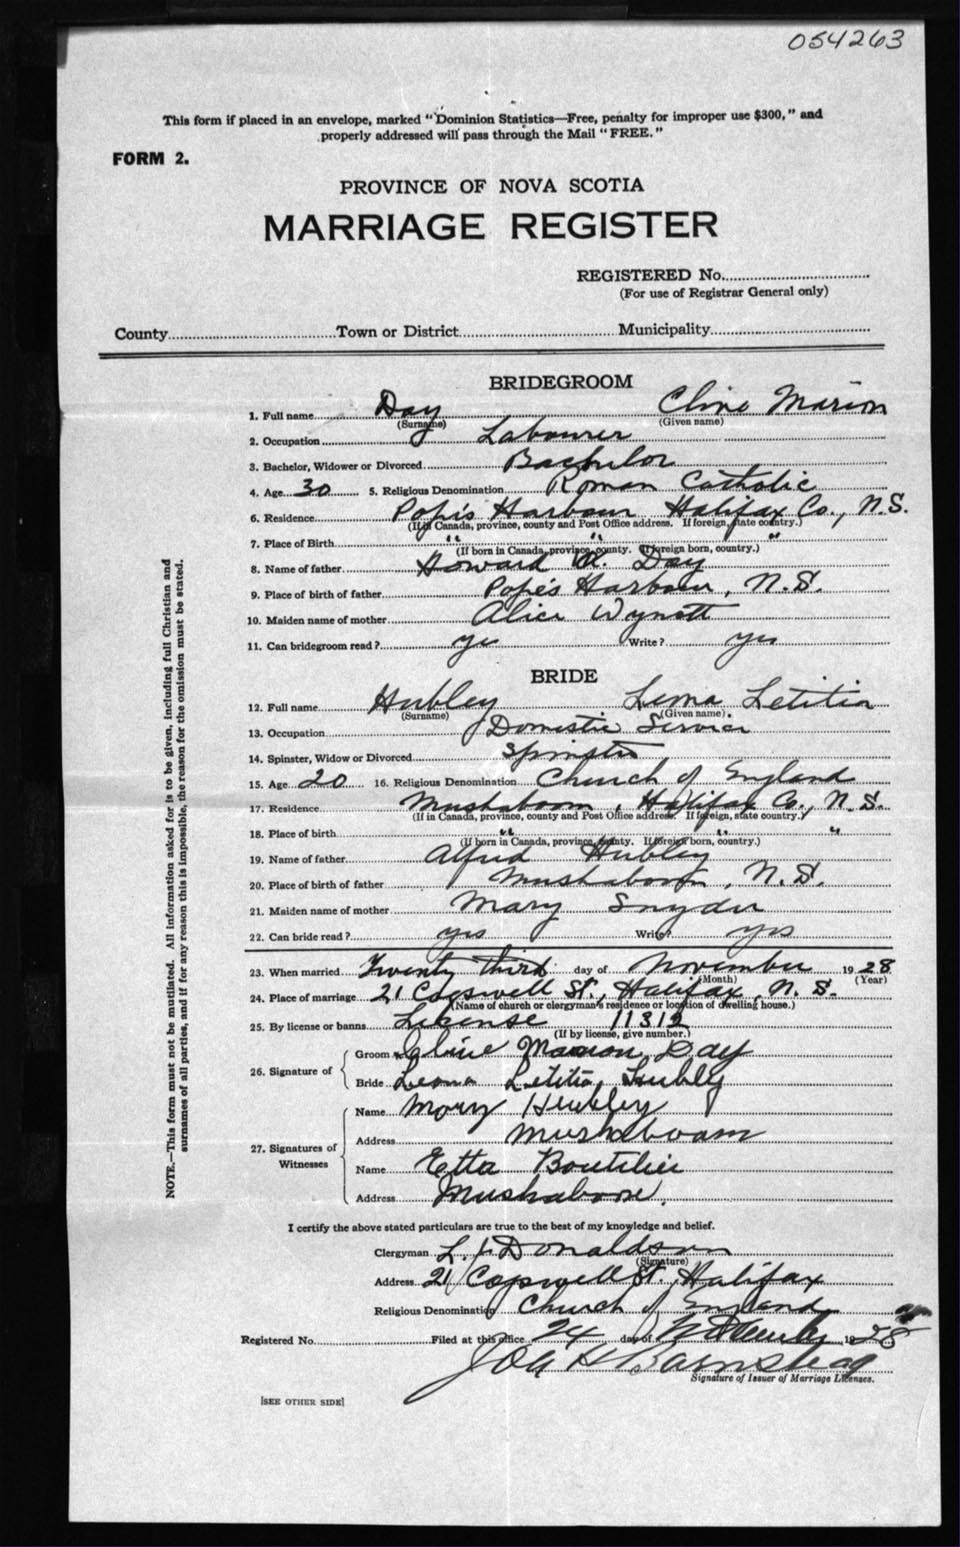 054263
This form if placed in an envelope, marked "Dominion Statistics—Free, penalty for improper use $300," and
properly addressed will pass through the Mail "FREE."
FORM 2.
PROVINCE OF NOVA SCOTIA
MARRIAGE REGISTER
REGISTERED No.
(For use of Registrar General only)
County Town or District Municipality
BRIDEGROOM
1. Full name Day Marion
(Surname) (Given name)
2. Occupation Labourer
3. Bachelor, Widower or Divorced Bachelor
4. Age 30 5. Religious Denomination Roman Catholic
6. Residence Pope's Harbour Halifax Co., N.S.
(If in Canada, province, county and Post Office address. If foreign, state country.)
7. Place of Birth " " "
(If born in Canada, province, county. If foreign born, country.)
8. Name of father Howard Day
9. Place of birth of father Pope's Harbour, N.S.
10. Maiden name of mother Alice
11. Can bridegroom read? yes Write? yes
BRIDE
12. Full name Hubley Leona Letitia
(Surname) (Given name)
13. Occupation Domestic Service
14. Spinster, Widow or Divorced Spinster
15. Age 20 16. Religious Denomination Church of England
17. Residence Mushaboom, Halifax Co., N.S.
(If in Canada, province, county and Post Office address. If foreign, state country.)
18. Place of birth " " "
(If born in Canada, province, county. If foreign born, country.)
19. Name of father Alfred Hubley
20. Place of birth of father Mushaboom, N.S.
21. Maiden name of mother Mary Snyder
22. Can bride read? yes Write? yes
23. When married Twenty third day of November 1928
(Month) (Year)
24. Place of marriage 21 Cogswell St., Halifax, N.S.
(Name of church or clergyman's residence or location of dwelling house.)
25. By license or banns License 11312
(If by license, give number.)
26. Signature of
Groom Marion Day
Bride Leona Letitia Hubley
27. Signatures of Witnesses
Name Mary Hubley
Address Mushaboom
Name Etta Boutilier
Address Mushaboom.
I certify the above stated particulars are true to the best of my knowledge and belief.
Clergyman L. J. Donaldson
(Signature)
Address 21 Cogswell St., Halifax
Religious Denomination Church of England
Registered No. Filed at this office 24 day of November 1928
Barnstead
Signature of Issuer of Marriage Licenses.
[SEE OTHER SIDE]
NOTE.—This form must not be mutilated. All information asked for is to be given, including full Christian and
surnames of all parties, and if for any reason this is impossible, the reason for the omission must be stated.